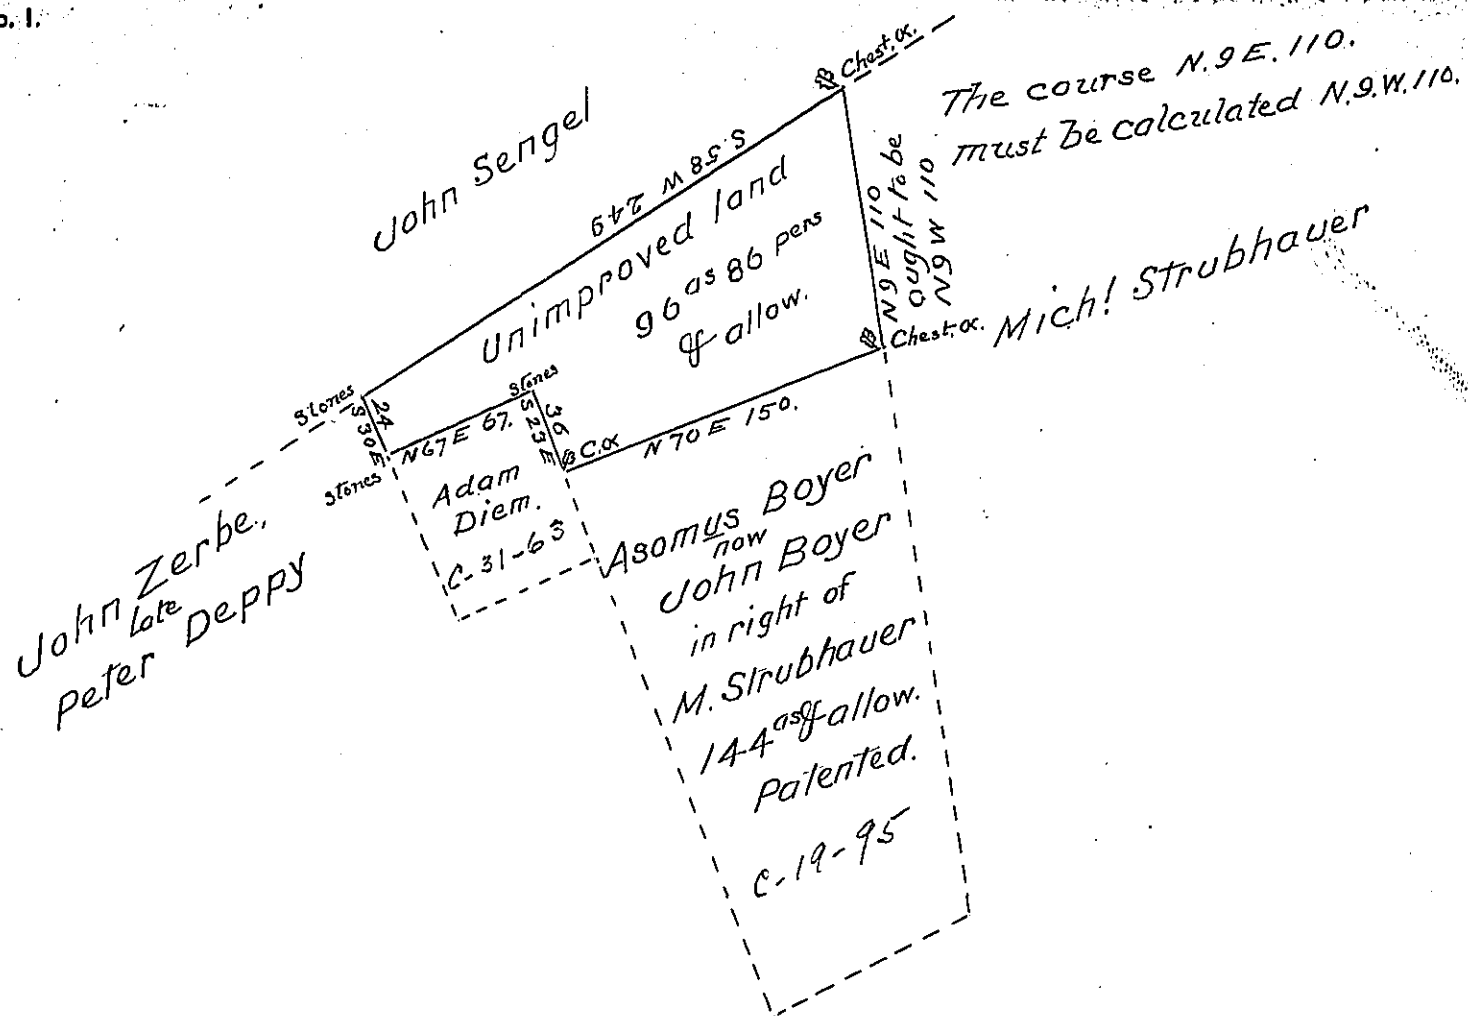 o. 1.
John Sengel
Chest. o.
The course N. 9 E. 110.
must be calculated N. 9. W. 110.
S. 58 W 249
Unimproved land
96 as 86 pers
& allow.
N 9 E 110
ought to be
N 9 W 110
Mich! Strubhauer
Chest. o.
Stones
S 30 E
24
Stones
N 67 E 67.
Stones
S 23 E
36
C. o
N 70 E 150.
Adam
Diem.
C-31-63
John Zerbe.,
late
Peter Deppy
Asomus Boyer
now
John Boyer
in right of
M. Strubhauer
144 as & allow.
Patented.
C-19-95